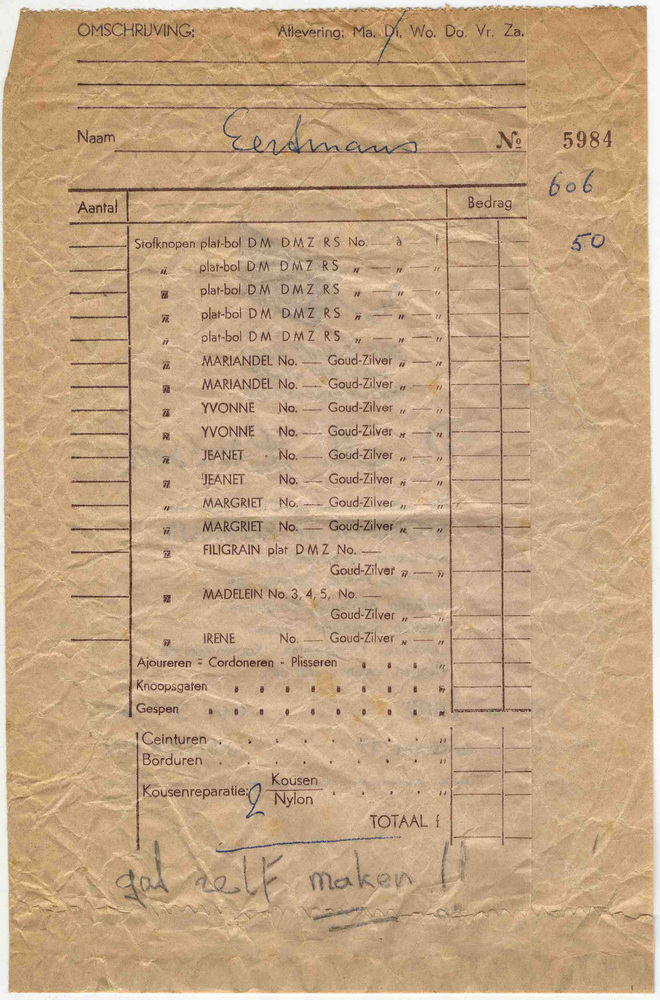 OMSCHRIJVING: Aflevering: Ma. Di. Wo. Do. Vr. Za.
Naam Eertmans No 5984
606
Aantal Bedrag
50
Stofknopen plat-bol DM DMZ RS No. — à — f
„ plat-bol DM DMZ RS „ — „ — „
„ plat-bol DM DMZ RS „ — „ — „
„ plat-bol DM DMZ RS „ — „ — „
„ plat-bol DM DMZ RS „ — „ — „
„ MARIANDEL No. — Goud-Zilver „ — „
„ MARIANDEL No. — Goud-Zilver „ — „
„ YVONNE No. — Goud-Zilver „ — „
„ YVONNE No. — Goud-Zilver „ — „
„ JEANET No. — Goud-Zilver „ — „
„ JEANET No. — Goud-Zilver „ — „
„ MARGRIET No. — Goud-Zilver „ — „
„ MARGRIET No. — Goud-Zilver „ — „
„ FILIGRAIN plat DMZ No. —
Goud-Zilver „ — „
„ MADELEIN No. 3, 4, 5, No. —
Goud-Zilver „ — „
„ IRENE No. — Goud-Zilver „ — „
Ajoureren - Cordoneren - Plisseren . . . „
Knoopsgaten . . . . . . . . „
Gespen . . . . . . . . . „
Ceinturen . . . . . . . . „
Borduren . . . . . . . . „
Kousenreparatie: 2 Kousen
Nylon . . . . „
TOTAAL f
gat zelf maken !!